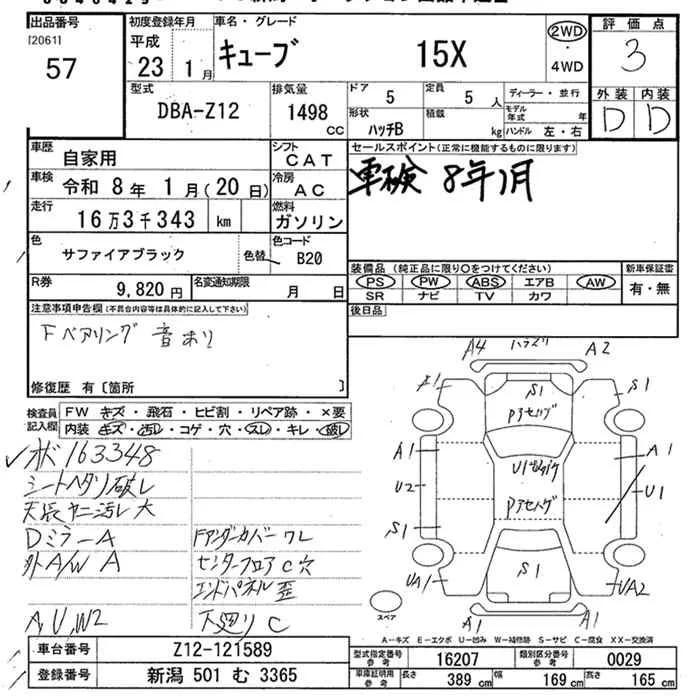 出品番号
[2061]
57
初度登録年月
平成 23 年 1 月
車名・グレード
キューブ 15X
2WD
・
4WD
評価点
3
外装 内装
D D
型式
DBA-Z12
排気量
1498 CC
ドア 5
定員 5 人
形状 ハッチB
積載 kg
ディーラー・並行
モデル年式 年
ハンドル 左・右
車歴 自家用
シフト CAT
車検 令和 8 年 1 月 (20 日)
冷房 AC
走行 16万3千343 km
燃料 ガソリン
色 サファイアブラック 色替
色コード B20
R券 9,820 円
名変通知期限 月 日
セールスポイント(正常に機能するものに限ります)
車検 8年1月
装備品 (純正品に限り○をつけてください)
PS PW ABS エアB AW
SR ナビ TV カワ
新車保証書
有・無
後日品
注意事項申告欄(不具合内容等は具体的に記入して下さい)
Fベアリング 音あり
修復歴 有〔箇所 〕
検査員記入欄
FW キズ・飛石・ヒビ割・リペア跡・×要
内装 キズ・汚レ・コゲ・穴・スレ・キレ・破レ
✓ポ 163348
シートヘタリ破レ
天張ヤニ汚レ大
Dミラー A
外A/W A
A,U,W2
Fアンダーカバーワレ
センターフロア C穴
エンドパネル歪
下廻り C
A4 A2
S1 S1
Pアセハゲ
A1 A1
U2 U1
Pアセハゲ
S1
S1
UA1 UA2
A1 A1
スペア
A−キズ E−エクボ U−凹み W−補修跡 S−サビ C−腐食 XX−交換済
車台番号 Z12-121589
登録番号 新潟 501 む 3365
型式指定番号 参考 16207
類別区分番号 参考 0029
車庫証明用 参考 長さ 389 cm 幅 169 cm 高さ 165 cm